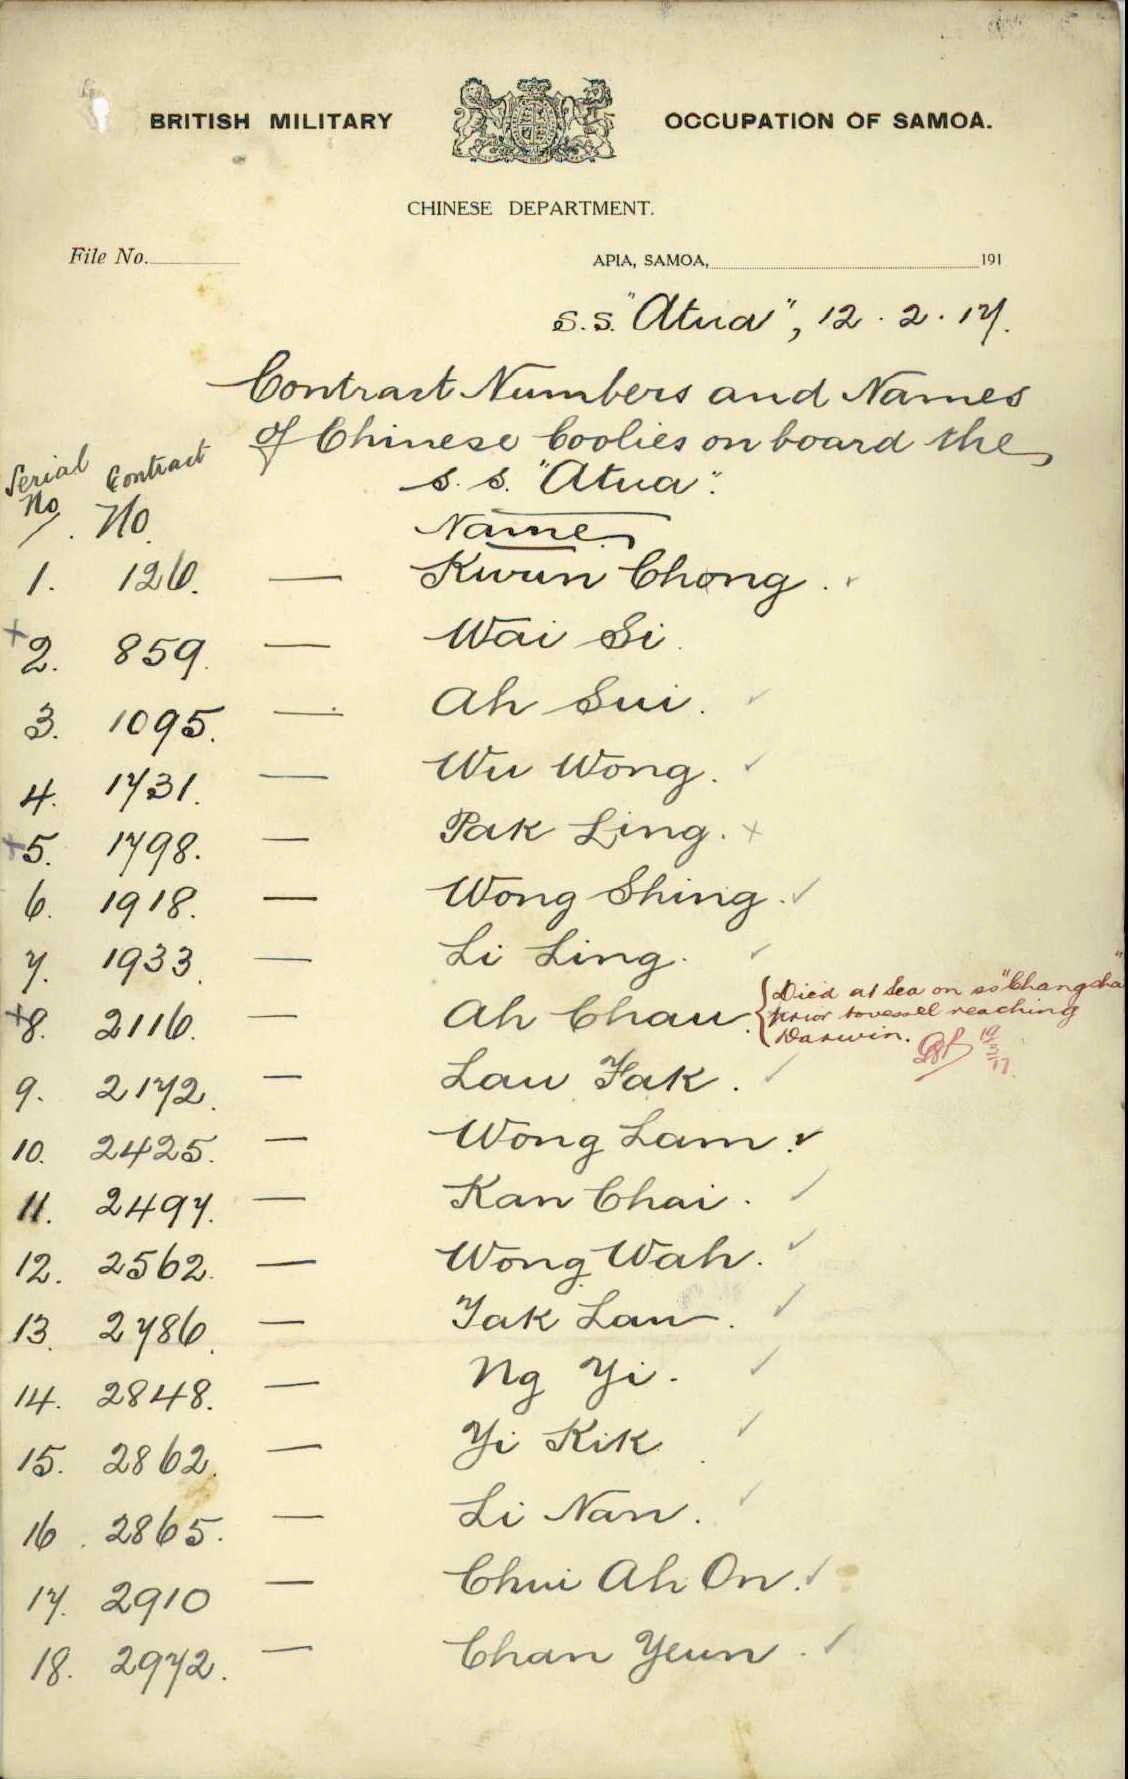 BRITISH MILITARY OCCUPATION OF SAMOA.
CHINESE DEPARTMENT.
File No.
APIA, SAMOA, 191
s.s. "Atua", 12.2.17.
Contract Numbers and Names
of Chinese Coolies on board the
s.s. "Atua".
Serial No. Contract No. Name.
1. 126. — Kwun Chong. ✓
+ 2. 859. — Wai Si.
3. 1095. — Ah Sui. ✓
4. 1731. — Wu Wong. ✓
+ 5. 1798. — Pak Ling. +
6. 1918. — Wong Shing. ✓
7. 1933. — Li Ling. ✓
+ 8. 2116. — Ah Chau. { Died at Sea on ss "Changsha"
prior to vessel reaching
Darwin. 19/3/17.
9. 2172. — Lau Fak. ✓
10. 2425. — Wong Lam. ✓
11. 2497. — Kan Chai. ✓
12. 2562. — Wong Wah. ✓
13. 2786. — Yak Lau. ✓
14. 2848. — Ng Yi. ✓
15. 2862. — Yi Kik. ✓
16. 2865. — Li Nan. ✓
17. 2910 — Chui Ah On. ✓
18. 2972. — Chan Yeun. ✓